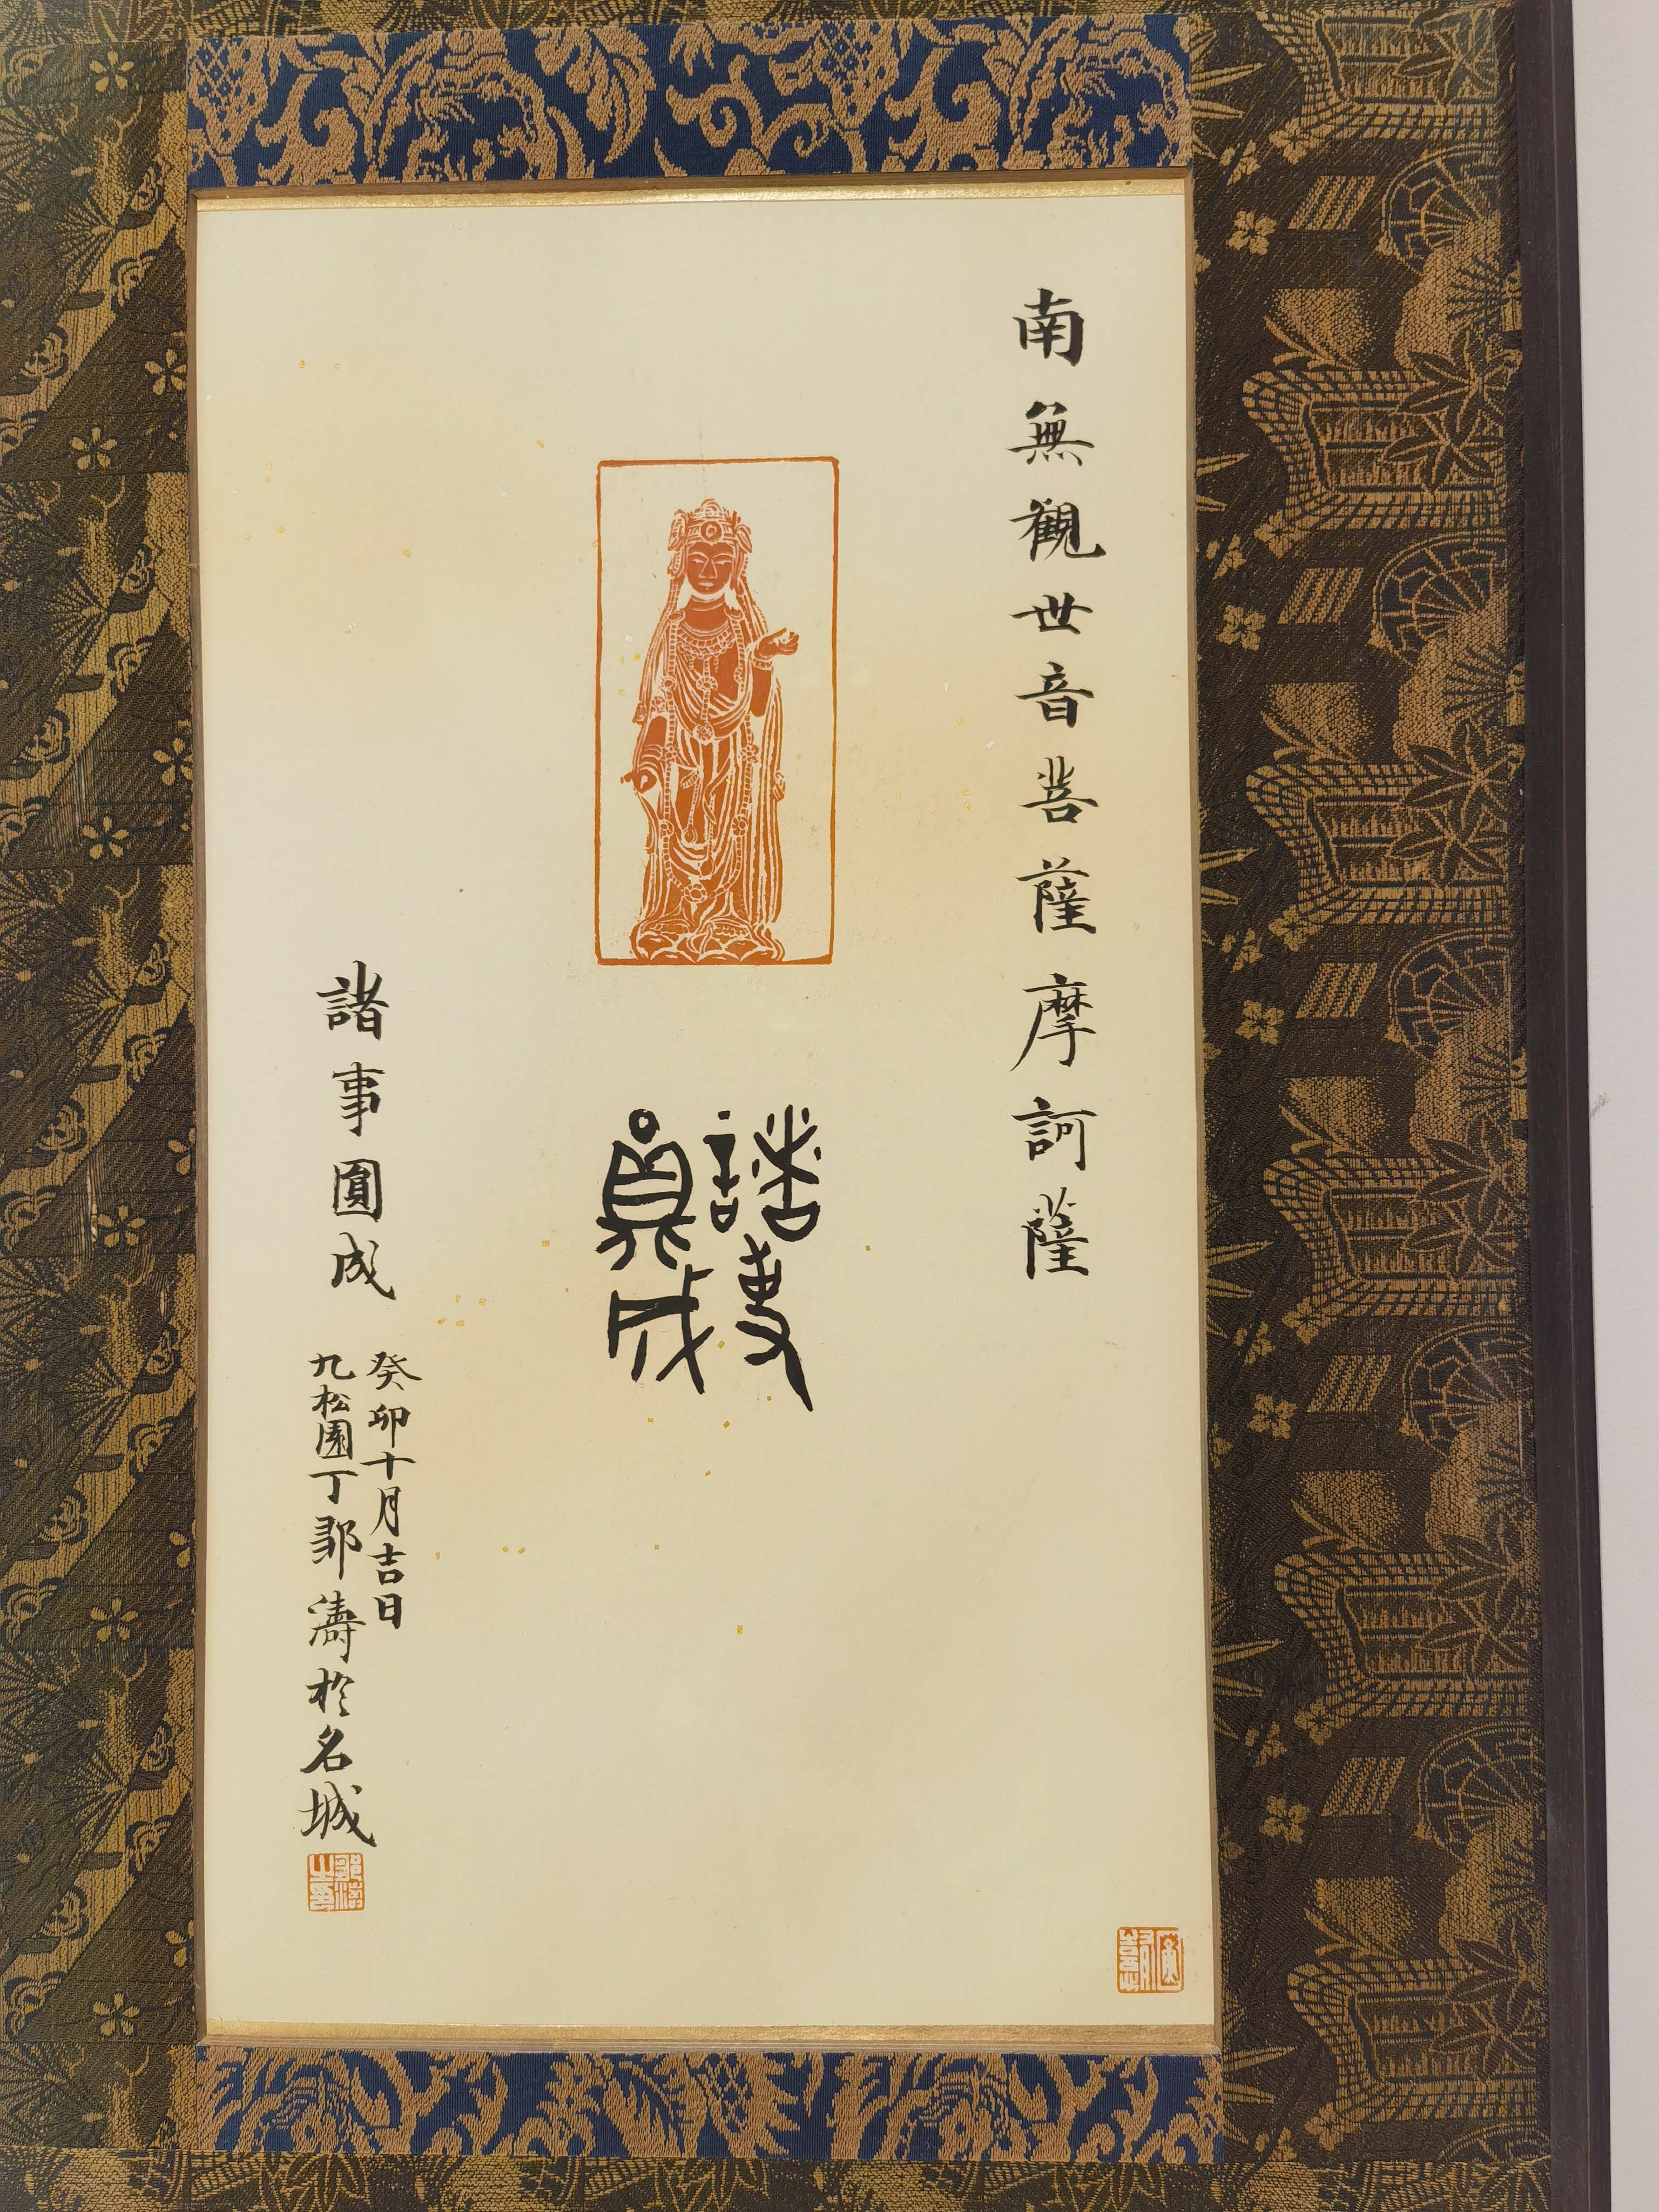 南無觀世音菩薩摩訶薩
諸事
圓成
諸事圓成
癸卯十月吉日
九松園丁鄒濤於名城